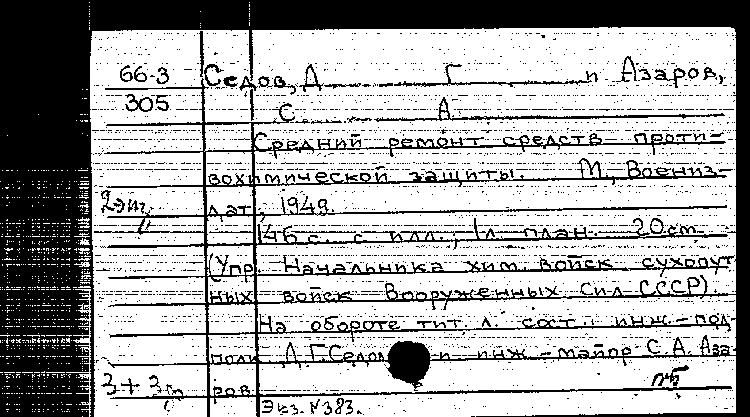 66-3 Седов, Д Г и Азаров,
305 С. А.
Средний ремонт средств проти-
вохимической защиты. М., Воениз-
2 экз. дат, 1949.
146 с. с илл., 1 л. план. 20 см.
(Упр. Начальника хим. войск сухопут
ных войск Вооруженных Сил СССР).
На обороте тит. л. сост.: инж.-под-
полк. Д. Г. Седов и инж.-майор С. А. Аза-
3+3 ров
Экз. №383.